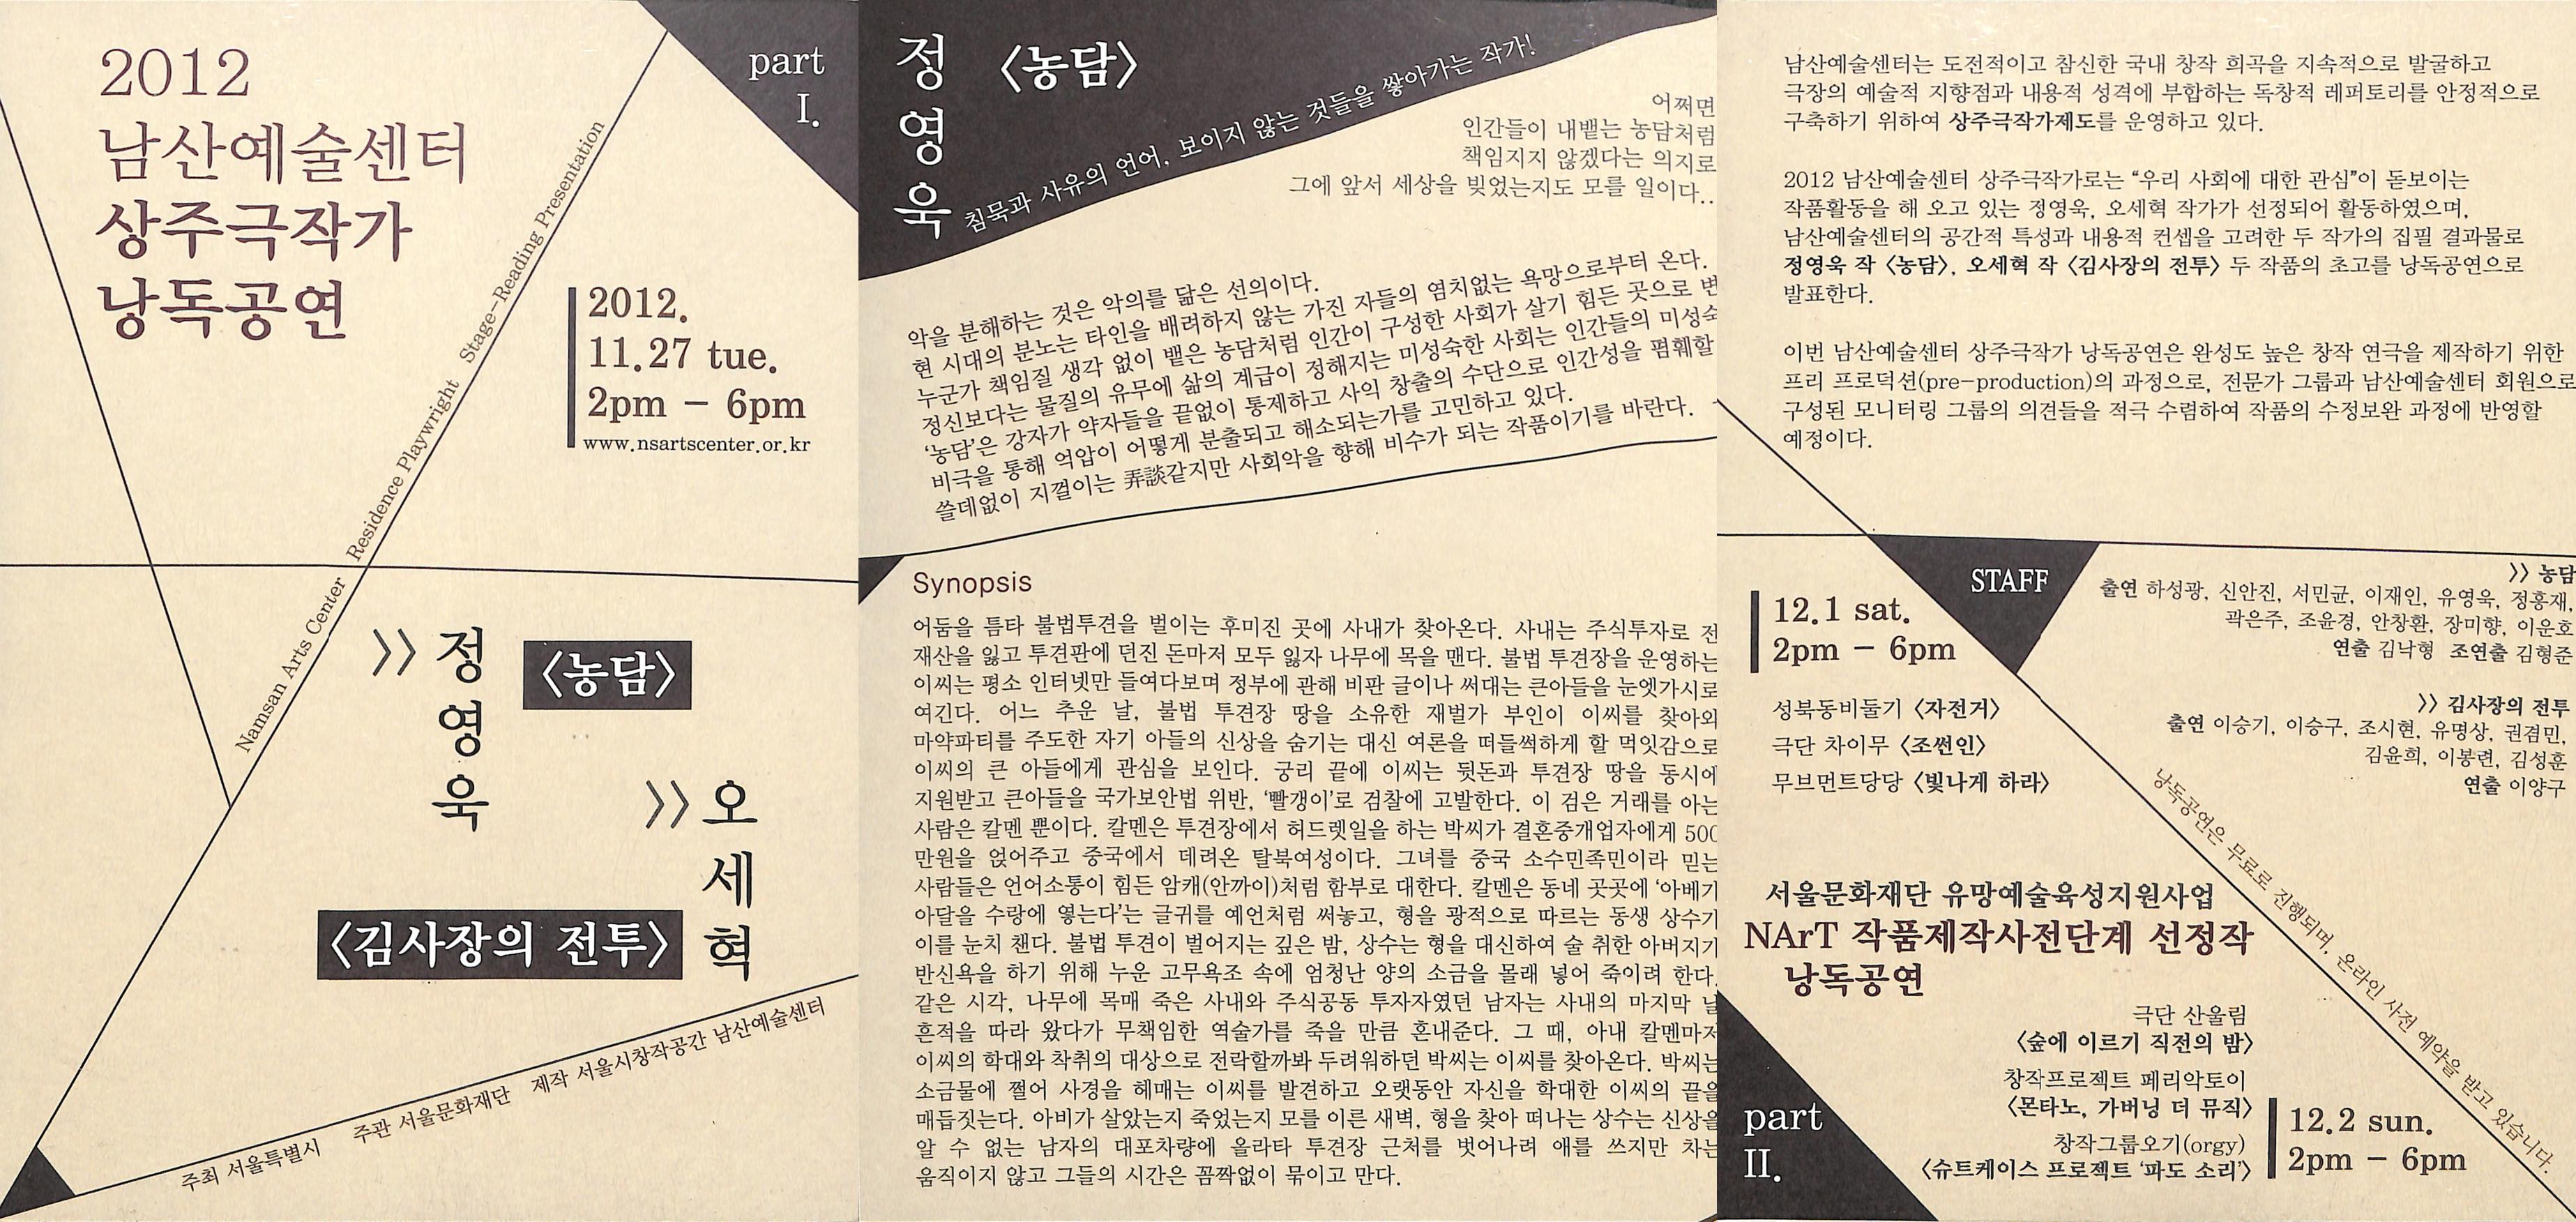 2012
남산예술센터
상주극작가
낭독공연
part
I.
Namsan Arts Center Residence Playwright Stage-Reading Presentation
2012.
11.27 tue.
2pm - 6pm
www.nsartscenter.or.kr
>> 정영욱
<농담>
>> 오세혁
<김사장의 전투>
주최 서울특별시 주관 서울문화재단 제작 서울시창작공간 남산예술센터
정영욱
<농담>
침묵과 사유의 언어, 보이지 않는 것들을 쌓아가는 작가!
어쩌면
인간들이 내뱉는 농담처럼
책임지지 않겠다는 의지로
그에 앞서 세상을 빚었는지도 모를 일이다..
악을 분해하는 것은 악의를 닮은 선의이다.
현 시대의 분노는 타인을 배려하지 않는 가진 자들의 염치없는 욕망으로부터 온다.
누군가 책임질 생각 없이 뱉은 농담처럼 인간이 구성한 사회가 살기 힘든 곳으로 변
정신보다는 물질의 유무에 삶의 계급이 정해지는 미성숙한 사회는 인간들의 미성숙
‘농담’은 강자가 약자들을 끝없이 통제하고 사익 창출의 수단으로 인간성을 폄훼할
비극을 통해 억압이 어떻게 분출되고 해소되는가를 고민하고 있다.
쓸데없이 지껄이는 弄談같지만 사회악을 향해 비수가 되는 작품이기를 바란다.
Synopsis
어둠을 틈타 불법투견을 벌이는 후미진 곳에 사내가 찾아온다. 사내는 주식투자로 전
재산을 잃고 투견판에 던진 돈마저 모두 잃자 나무에 목을 맨다. 불법 투견장을 운영하는
이씨는 평소 인터넷만 들여다보며 정부에 관해 비판 글이나 써대는 큰아들을 눈엣가시로
여긴다. 어느 추운 날, 불법 투견장 땅을 소유한 재벌가 부인이 이씨를 찾아와
마약파티를 주도한 자기 아들의 신상을 숨기는 대신 여론을 떠들썩하게 할 먹잇감으로
이씨의 큰 아들에게 관심을 보인다. 궁리 끝에 이씨는 뒷돈과 투견장 땅을 동시에
지원받고 큰아들을 국가보안법 위반, ‘빨갱이’로 검찰에 고발한다. 이 검은 거래를 아는
사람은 칼멘 뿐이다. 칼멘은 투견장에서 허드렛일을 하는 박씨가 결혼중개업자에게 500
만원을 얹어주고 중국에서 데려온 탈북여성이다. 그녀를 중국 소수민족민이라 믿는
사람들은 언어소통이 힘든 암캐(안까이)처럼 함부로 대한다. 칼멘은 동네 곳곳에 ‘아베기
아달을 수랑에 옇는다’는 글귀를 예언처럼 써놓고, 형을 광적으로 따르는 동생 상수가
이를 눈치 챈다. 불법 투견이 벌어지는 깊은 밤, 상수는 형을 대신하여 술 취한 아버지가
반신욕을 하기 위해 누운 고무욕조 속에 엄청난 양의 소금을 몰래 넣어 죽이려 한다.
같은 시각, 나무에 목매 죽은 사내와 주식공동 투자자였던 남자는 사내의 마지막 날
흔적을 따라 왔다가 무책임한 역술가를 죽을 만큼 혼내준다. 그 때, 아내 칼멘마저
이씨의 학대와 착취의 대상으로 전락할까봐 두려워하던 박씨는 이씨를 찾아온다. 박씨는
소금물에 쩔어 사경을 헤매는 이씨를 발견하고 오랫동안 자신을 학대한 이씨의 끝을
매듭짓는다. 아비가 살았는지 죽었는지 모를 이른 새벽, 형을 찾아 떠나는 상수는 신상을
알 수 없는 남자의 대포차량에 올라타 투견장 근처를 벗어나려 애를 쓰지만 차는
움직이지 않고 그들의 시간은 꼼짝없이 묶이고 만다.
남산예술센터는 도전적이고 참신한 국내 창작 희곡을 지속적으로 발굴하고
극장의 예술적 지향점과 내용적 성격에 부합하는 독창적 레퍼토리를 안정적으로
구축하기 위하여 상주극작가제도를 운영하고 있다.
2012 남산예술센터 상주극작가로는 “우리 사회에 대한 관심”이 돋보이는
작품활동을 해 오고 있는 정영욱, 오세혁 작가가 선정되어 활동하였으며,
남산예술센터의 공간적 특성과 내용적 컨셉을 고려한 두 작가의 집필 결과물로
정영욱 작 <농담>, 오세혁 작 <김사장의 전투> 두 작품의 초고를 낭독공연으로
발표한다.
이번 남산예술센터 상주극작가 낭독공연은 완성도 높은 창작 연극을 제작하기 위한
프리 프로덕션(pre-production)의 과정으로, 전문가 그룹과 남산예술센터 회원으로
구성된 모니터링 그룹의 의견들을 적극 수렴하여 작품의 수정보완 과정에 반영할
예정이다.
STAFF
>> 농담
출연 하성광, 신안진, 서민균, 이재인, 유영욱, 정홍재,
곽은주, 조윤경, 안창환, 장미향, 이운호
연출 김낙형 조연출 김형준
>> 김사장의 전투
출연 이승기, 이승구, 조시현, 유명상, 권겸민,
김윤희, 이봉련, 김성훈
연출 이양구
12.1 sat.
2pm - 6pm
성북동비둘기 <자전거>
극단 차이무 <조썬인>
무브먼트당당 <빛나게 하라>
낭독공연은 무료로 진행되며, 온라인 사전 예약을 받고 있습니다.
서울문화재단 유망예술육성지원사업
NArT 작품제작사전단계 선정작
낭독공연
극단 산울림
<숲에 이르기 직전의 밤>
창작프로젝트 페리악토이
<몬타노, 가버닝 더 뮤직>
창작그룹오기(orgy)
<슈트케이스 프로젝트 ‘파도 소리’>
12.2 sun.
2pm - 6pm
part
II.